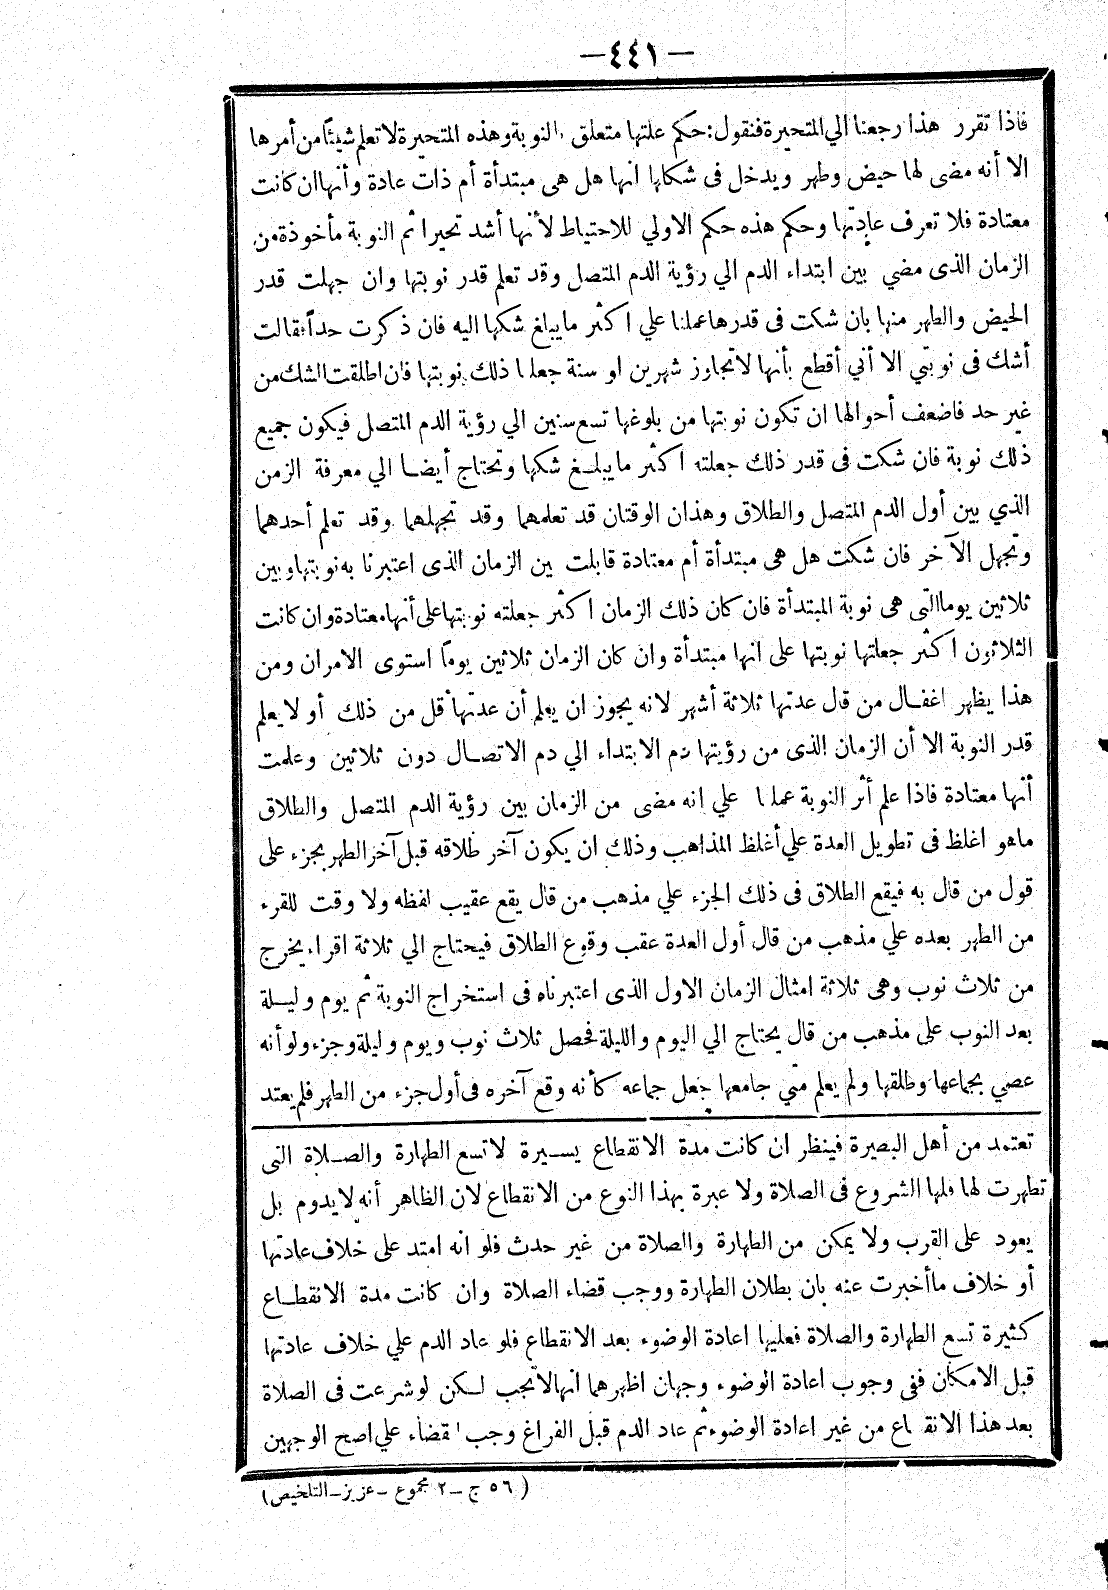 —٤٤١—
فاذا تقرر هذا رجعنا الي المتحيرة فنقول: حكم علتها متعلق بالنوبة وهذه المتحيرة لا تعلم شيئاً من أمرها
الا أنه مضى لها حيض وطهر ويدخل فى شكها انها هل هى مبتدأة أم ذات عادة وأنها ان كانت
معتادة فلا تعرف عادتها وحكم هذه حكم الاولي للاحتياط لأنها أشد تحيرا ثم النوبة مأخوذة من
الزمان الذى مضي بين ابتداء الدم الي رؤية الدم المتصل وقد تعلم قدر نوبتها وان جهلت قدر
الحيض والطهر منها بان شكت فى قدرها عملنا علي اكثر ما يبلغ شكها اليه فان ذكرت حداً فقالت
أشك فى نوبتي الا أني أقطع بأنها لا تجاوز شهرين او سنة جعلنا ذلك نوبتها فان اطلقت الشك من
غير حد فاضعف أحوالها ان تكون نوبتها من بلوغها تسع سنين الي رؤية الدم المتصل فيكون جميع
ذلك نوبة فان شكت فى قدر ذلك جعلته اكثر ما يبلغ شكها وتحتاج أيضا الي معرفة الزمن
الذي بين أول الدم المتصل والطلاق وهذان الوقتان قد تعلمهما وقد تجهلهما وقد تعلم أحدهما
وتجهل الآخر فان شكت هل هى مبتدأة أم معتادة قابلت بين الزمان الذى اعتبرنا به نوبتها وبين
ثلاثين يوما التى هى نوبة المبتدأة فان كان ذلك الزمان اكثر جعلته نوبتها على أنها معتادة وان كانت
الثلاثون اكثر جعلتها نوبتها على انها مبتدأة وان كان الزمان ثلاثين يوماً استوى الامران ومن
هذا يظهر اغفال من قال عدتها ثلاثة أشهر لانه يجوز ان يعلم أن عدتها أقل من ذلك أو لا يعلم
قدر النوبة الا أن الزمان الذى من رؤيتها دم الابتداء الي دم الاتصال دون ثلاثين وعلمت
أنها معتادة فاذا علم أثر النوبة عملنا علي انه مضى من الزمان بين رؤية الدم المتصل والطلاق
ماهو اغلظ فى تطويل العدة علي أغلظ المذاهب وذلك ان يكون آخر طلاقه قبل آخر الطهر بجزء على
قول من قال به فيقع الطلاق فى ذلك الجزء علي مذهب من قال يقع عقيب لفظه ولا وقت للقرء
من الطهر بعده علي مذهب من قال أول العدة عقب وقوع الطلاق فيحتاج الي ثلاثة اقراء يخرج
من ثلاث نوب وهى ثلاثة امثال الزمان الاول الذى اعتبرناه فى استخراج النوبة ثم يوم وليلة
بعد النوب على مذهب من قال يحتاج الي اليوم والليلة فحصل ثلاث نوب ويوم وليلة وجزء ولو أنه
عصي بجماعها وطلقها ولم يعلم متي جامعها جعل جماعه كأنه وقع آخره فى أول جزء من الطهر فلم يعتد
تعتمد من أهل البصيرة فينظر ان كانت مدة الانقطاع يسيرة لا تسع الطهارة والصلاة التى
تطهرت لها فلها الشروع فى الصلاة ولا عبرة بهذا النوع من الانقطاع لان الظاهر أنه لا يدوم بل
يعود على القرب ولا يمكن من الطهارة والصلاة من غير حدث فلو انه امتد على خلاف عادتها
أو خلاف ما أخبرت عنه بان بطلان الطهارة ووجب قضاء الصلاة وان كانت مدة الانقطاع
كثيرة تسع الطهارة والصلاة فعليها اعادة الوضوء بعد الانقطاع فلو عاد الدم علي خلاف عادتها
قبل الامكان ففى وجوب اعادة الوضوء وجهان اظهرهما انها لا تجب لكن لو شرعت فى الصلاة
بعد هذا الانقطاع من غير اعادة الوضوء ثم عاد الدم قبل الفراغ وجب القضاء علي اصح الوجهين
( ٥٦ ج — ٢ مجموع — عزيز — التلخيص)